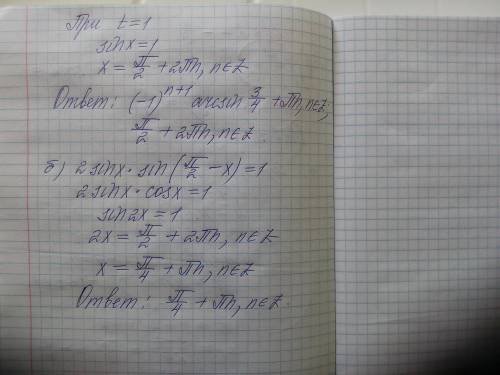 При t=1
sinx=1
x = π/2 + 2πn, n∈Z
Ответ: (-1)^(n+1) arcsin 3/4 + πn, n∈Z,
π/2 + 2πn, n∈Z.
б) 2sinx · sin(π/2 - x) = 1
2sinx · cosx = 1
sin2x = 1
2x = π/2 + 2πn, n∈Z
x = π/4 + πn, n∈Z
Ответ: π/4 + πn, n∈Z.